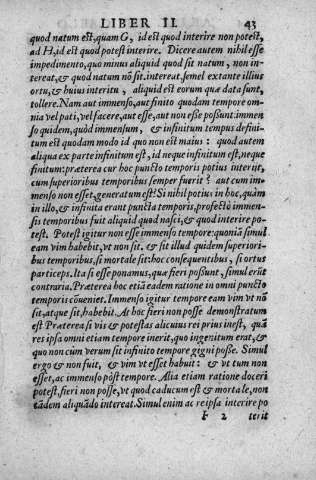 LIBER II. 43
quod natum est, quam G, id est quod interire non potest,
ad H, id est quod potest interire. Dicere autem nihil esse
impedimento, quo minus aliquid quod sit natum, non in-
tereat, & quod natum nō sit. intereat. semel extante illius
ortu, & huius interitu, aliquid est eorum quæ data sunt,
tollere. Nam aut immenso, aut finito quodam tempore om-
nia vel pati, vel facere, aut esse, aut non esse possunt: immen
so quidem, quòd immensum, & infinitum tempus defini-
tum est quodam modo id quo non est maius: quod autem
aliqua ex parte infinitum est, id neque infinitum est, neque
finitum: præterea cur hoc puncto temporis potius interijt,
cum superioribus temporibus semper fuerit? aut cum im-
menso non esset, generatum est? Si nihil potius in hoc, quàm
in illo, & infinita erant puncta temporis, profectò immen-
sis temporibus fuit aliquid quod nasci, & quod interire po-
test. Potest igitur non esse immenso tempore: quoniā simul
eam vim habebit, vt non sit, & sit illud quidem superiori-
bus temporibus, si mortale sit: hoc consequentibus, si ortus
particeps. Ita si esse ponamus, quæ fieri possunt, simul erūt
contraria. Præterea hoc etiā eadem ratione in omni puncto
temporis cōueniet. Immenso igitur tempore eam vim vt nō
sit, atque sit, habebit. At hoc fieri non posse demonstratum
est. Præterea si vis & potestas alicuius rei prius inest, quā
res ipsa omni etiam tempore inerit, quo ingenitum erat, &
quo non cum verum sit infinito tempore gigni posse. Simul
ergo & non fuit, & vim vt esset habuit: & vt tum non
esset, ac immenso pòst tempore. Alia etiam ratione doceri
potest, fieri non posse, vt quod caducum est & mortale, non
eādem aliquādo intereat. Simul enim ac reipsa interire po
2 terit